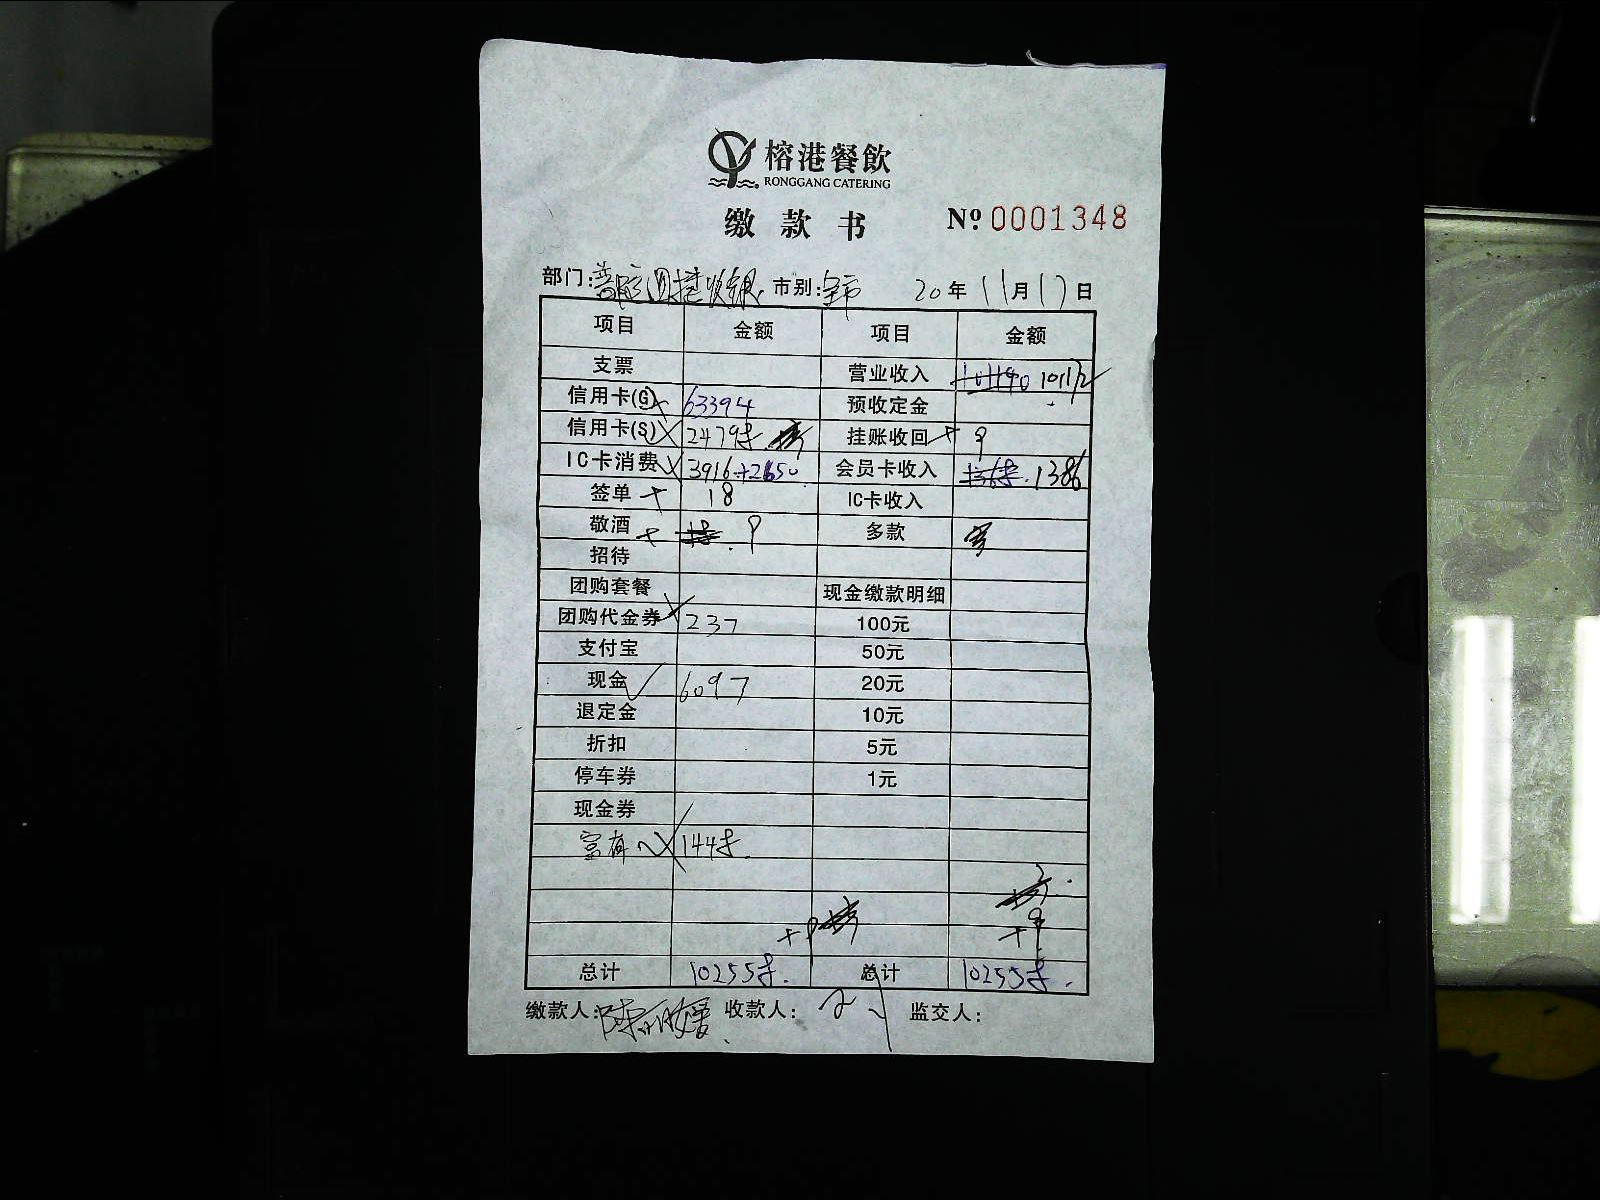 榕港餐飲
RONGGANG CATERING
缴款书 Nº 0001348
部门: 收银 市别: 全市 20年11月17日
项目 金额 项目 金额
支票 营业收入 101172
信用卡(G) 63394 预收定金
信用卡(S) 挂账收回 9
IC卡消费 3916+2650 会员卡收入 1386
签单 18 IC卡收入
敬酒 9 多款
招待
团购套餐 现金缴款明细
团购代金券 237 100元
支付宝 50元
现金 6097 20元
退定金 10元
折扣 5元
停车券 1元
现金券
+9 +9
总计 总计
缴款人: 陈 收款人: 监交人: